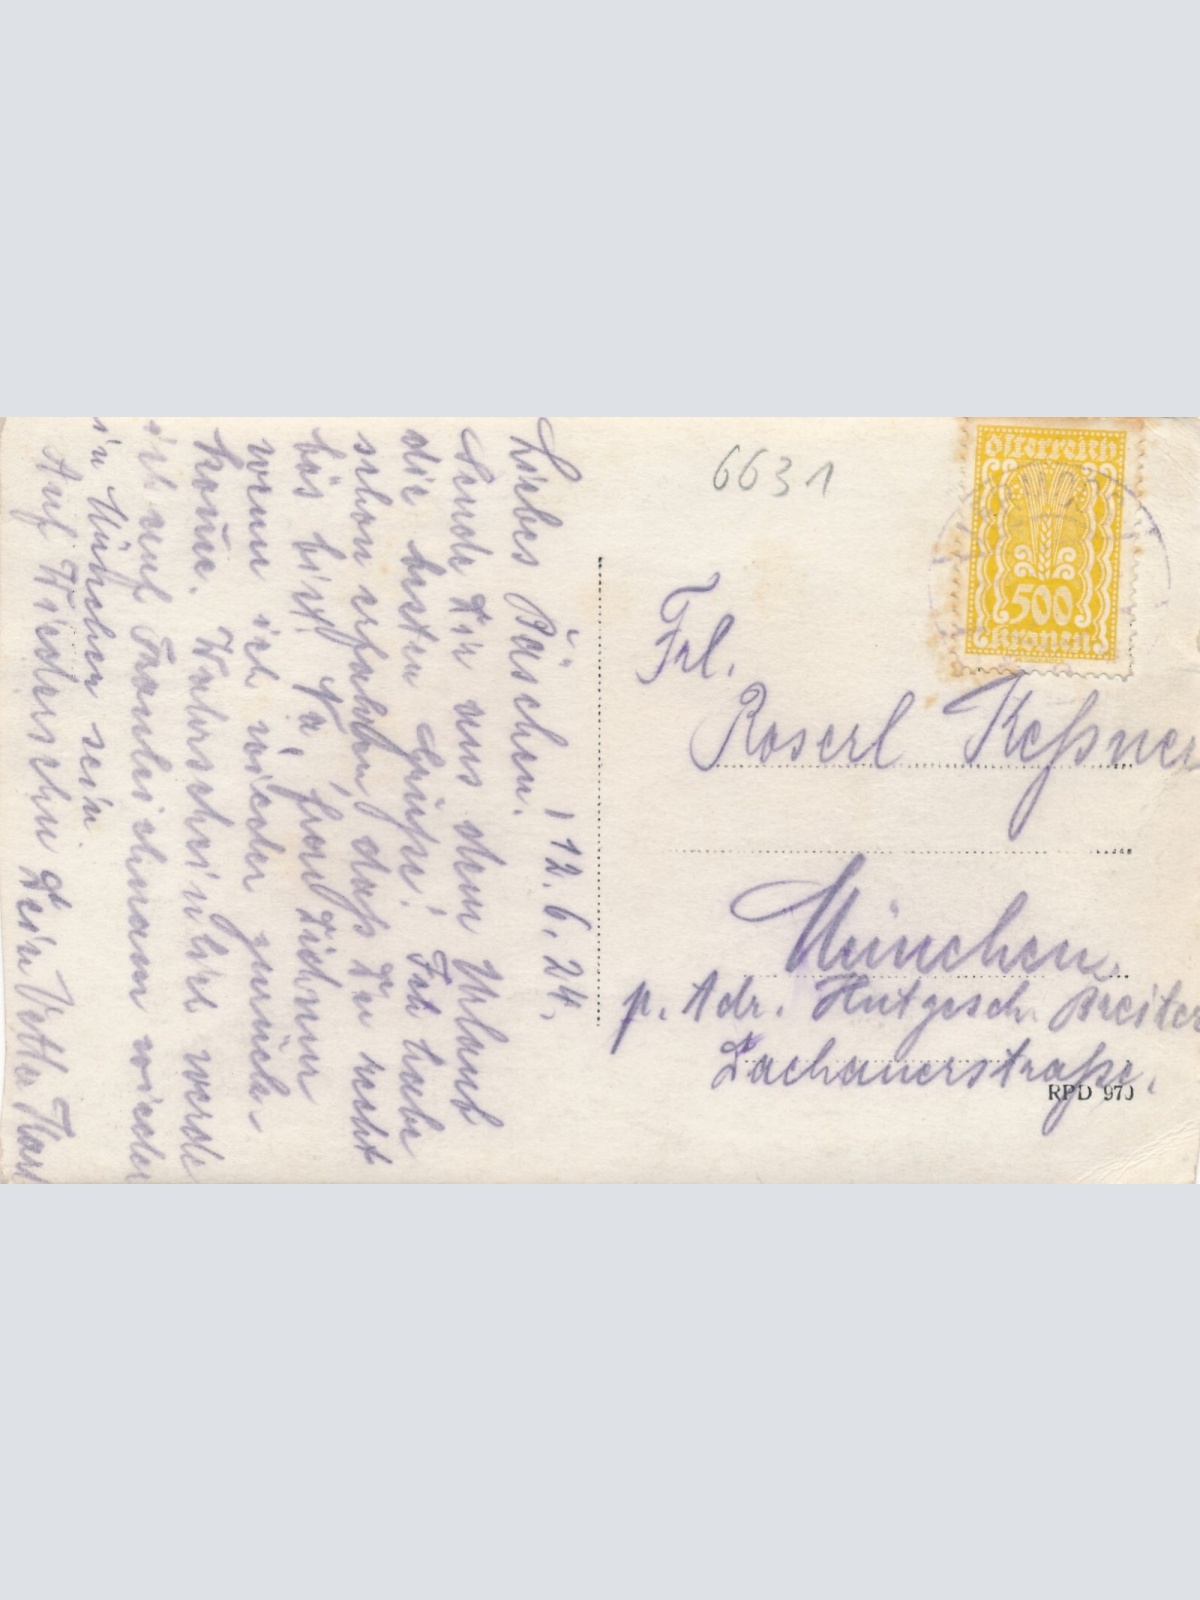 12. 6. 24.
Liebes Bäschen!
Sende Dir aus dem Urlaub
die besten Grüße! Ich habe
schon erfahren, daß Du recht
bös bist. Na, freu Dich nur
wenn ich wieder zurück-
kom̄e. Wahrscheinlich werde
ich auf Fronleichnam wieder
in München sein.
Auf Wiedersehn Dein Vetter Karl
6631
Österreich
500
Kronen
Frl.
Roserl Keßner
München
p. Adr. Hutgesch. Breiter
Dachauerstraße.
RPD 970